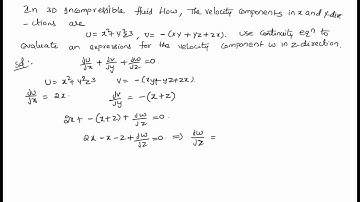 * In 3D Incompressible fluid flow, The velocity components in x and y-dire
-ctions are
U = x² + y²z³, v = -(xy + yz + zx). use continuity eqⁿ to
evaluate an expressions for the velocity component w in z-direction.
Sol:- du/dx + dv/dy + dw/dz = 0
U = x² + y²z³ V = -(xy + yz + zx)
du/dx = 2x dv/dy = -(x+z)
2x + -(x+z) + dw/dz = 0
2x - x - z + dw/dz = 0 ⇒ dw/dz =